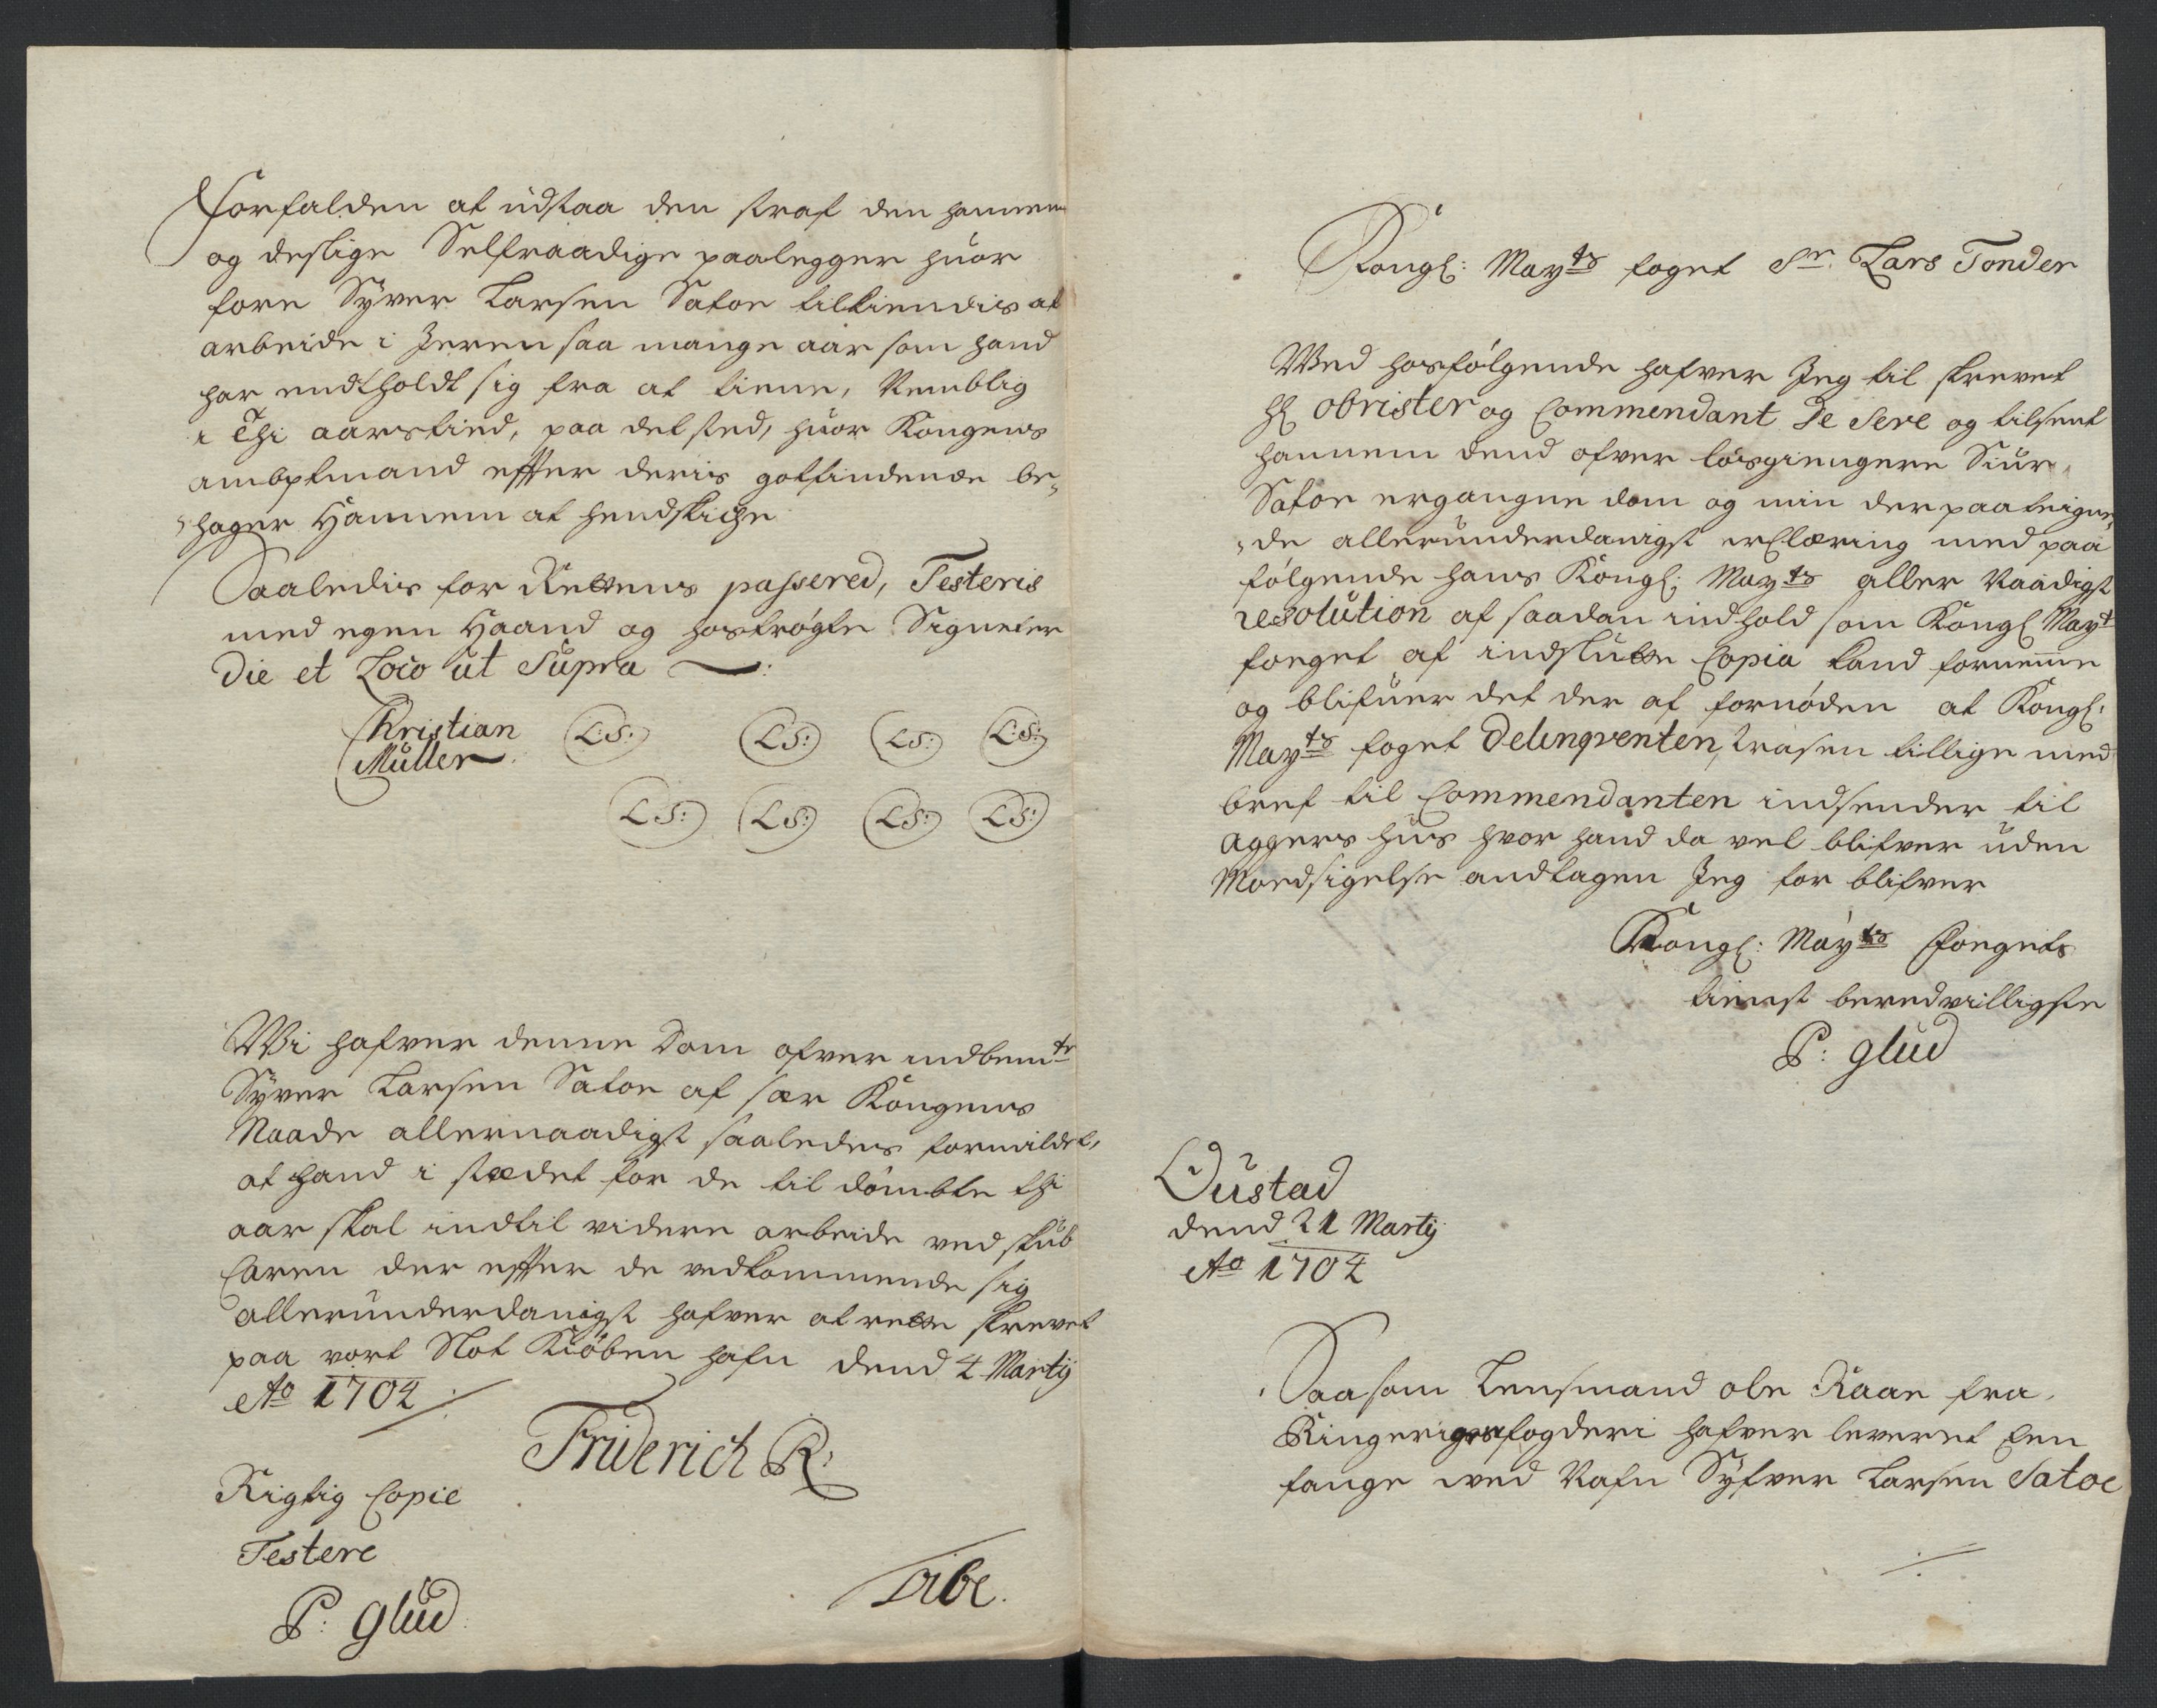 Forfalden at udstaa den straf den hannem
og deslige Selfraadige paalegger huor
fore Syver Larsen Satoe tilkiendis at
arbeide i Jeren saa mange aar som hand
har endtholdt sig fra at tiene, Nemblig
i Thi aars tied, paa det sted, huor Kongens
ambptmand effter deris gotfindende be„
„hager Hannem at hendskiche
Saaledis for Rettens passered, Testeris
med egen Haand og hostrøgte Signeter
Die et Loco ut Supra —:
Christian Müller (L:S:) (L:S:) (L:S:) (L:S:)
(L:S:) (L:S:) (L:S:) (L:S:)
Wi hafver denne Dom ofver indbemte
Syver Larsen Satoe af sær Kongens
Naade allernaadigst saaledes formildet,
at hand i stædet for de til dømbte thi
aar skal indtil videre arbeide ved skub
Caren der effter de vedkommende sig
allerunderdanigst hafver at rette skrevet
paa vort Slot Kiøben hafn dend 4 Martij
Ao 1704 ./.
Friderich R:
Rigtig Copie
Testere
P: Glud
Vibe.
Kongl: Mayts foget Sr Lars Tonder
Wed hosfølgende hafver Jeg til skrevet
Hl Obrister og Commendant De Sere og tilsent
hannem dend ofver løsgiengere Siur
Satoe ergangne dom og min der paa teigne„
„de allerunderdanigst erClæring med paa
følgende hans Kongl: Mayts aller Naadigst
resolution af saadan indhold som Kongl Mayt
foeget af indslutte Copia kand fornemme
og blifuer det der af fornøden at Kongl:
Mayts foget Delinqventen, Arasen tillige med
bref til Commendanten indsender til
Aggers huus hvor hand da vel blifver uden
Moedsigelse andtagen Jeg for blifver
Kongl: Mayts Foegets
tienst beredvilligste
P: Glud
Oustad
dend 21 Martij
Ao 1704
Saasom Lensmand ole Raae fra
Ringeriges fogderi hafver leveret Een
fange ved Nafn Syfver Larsen Satoe
./.